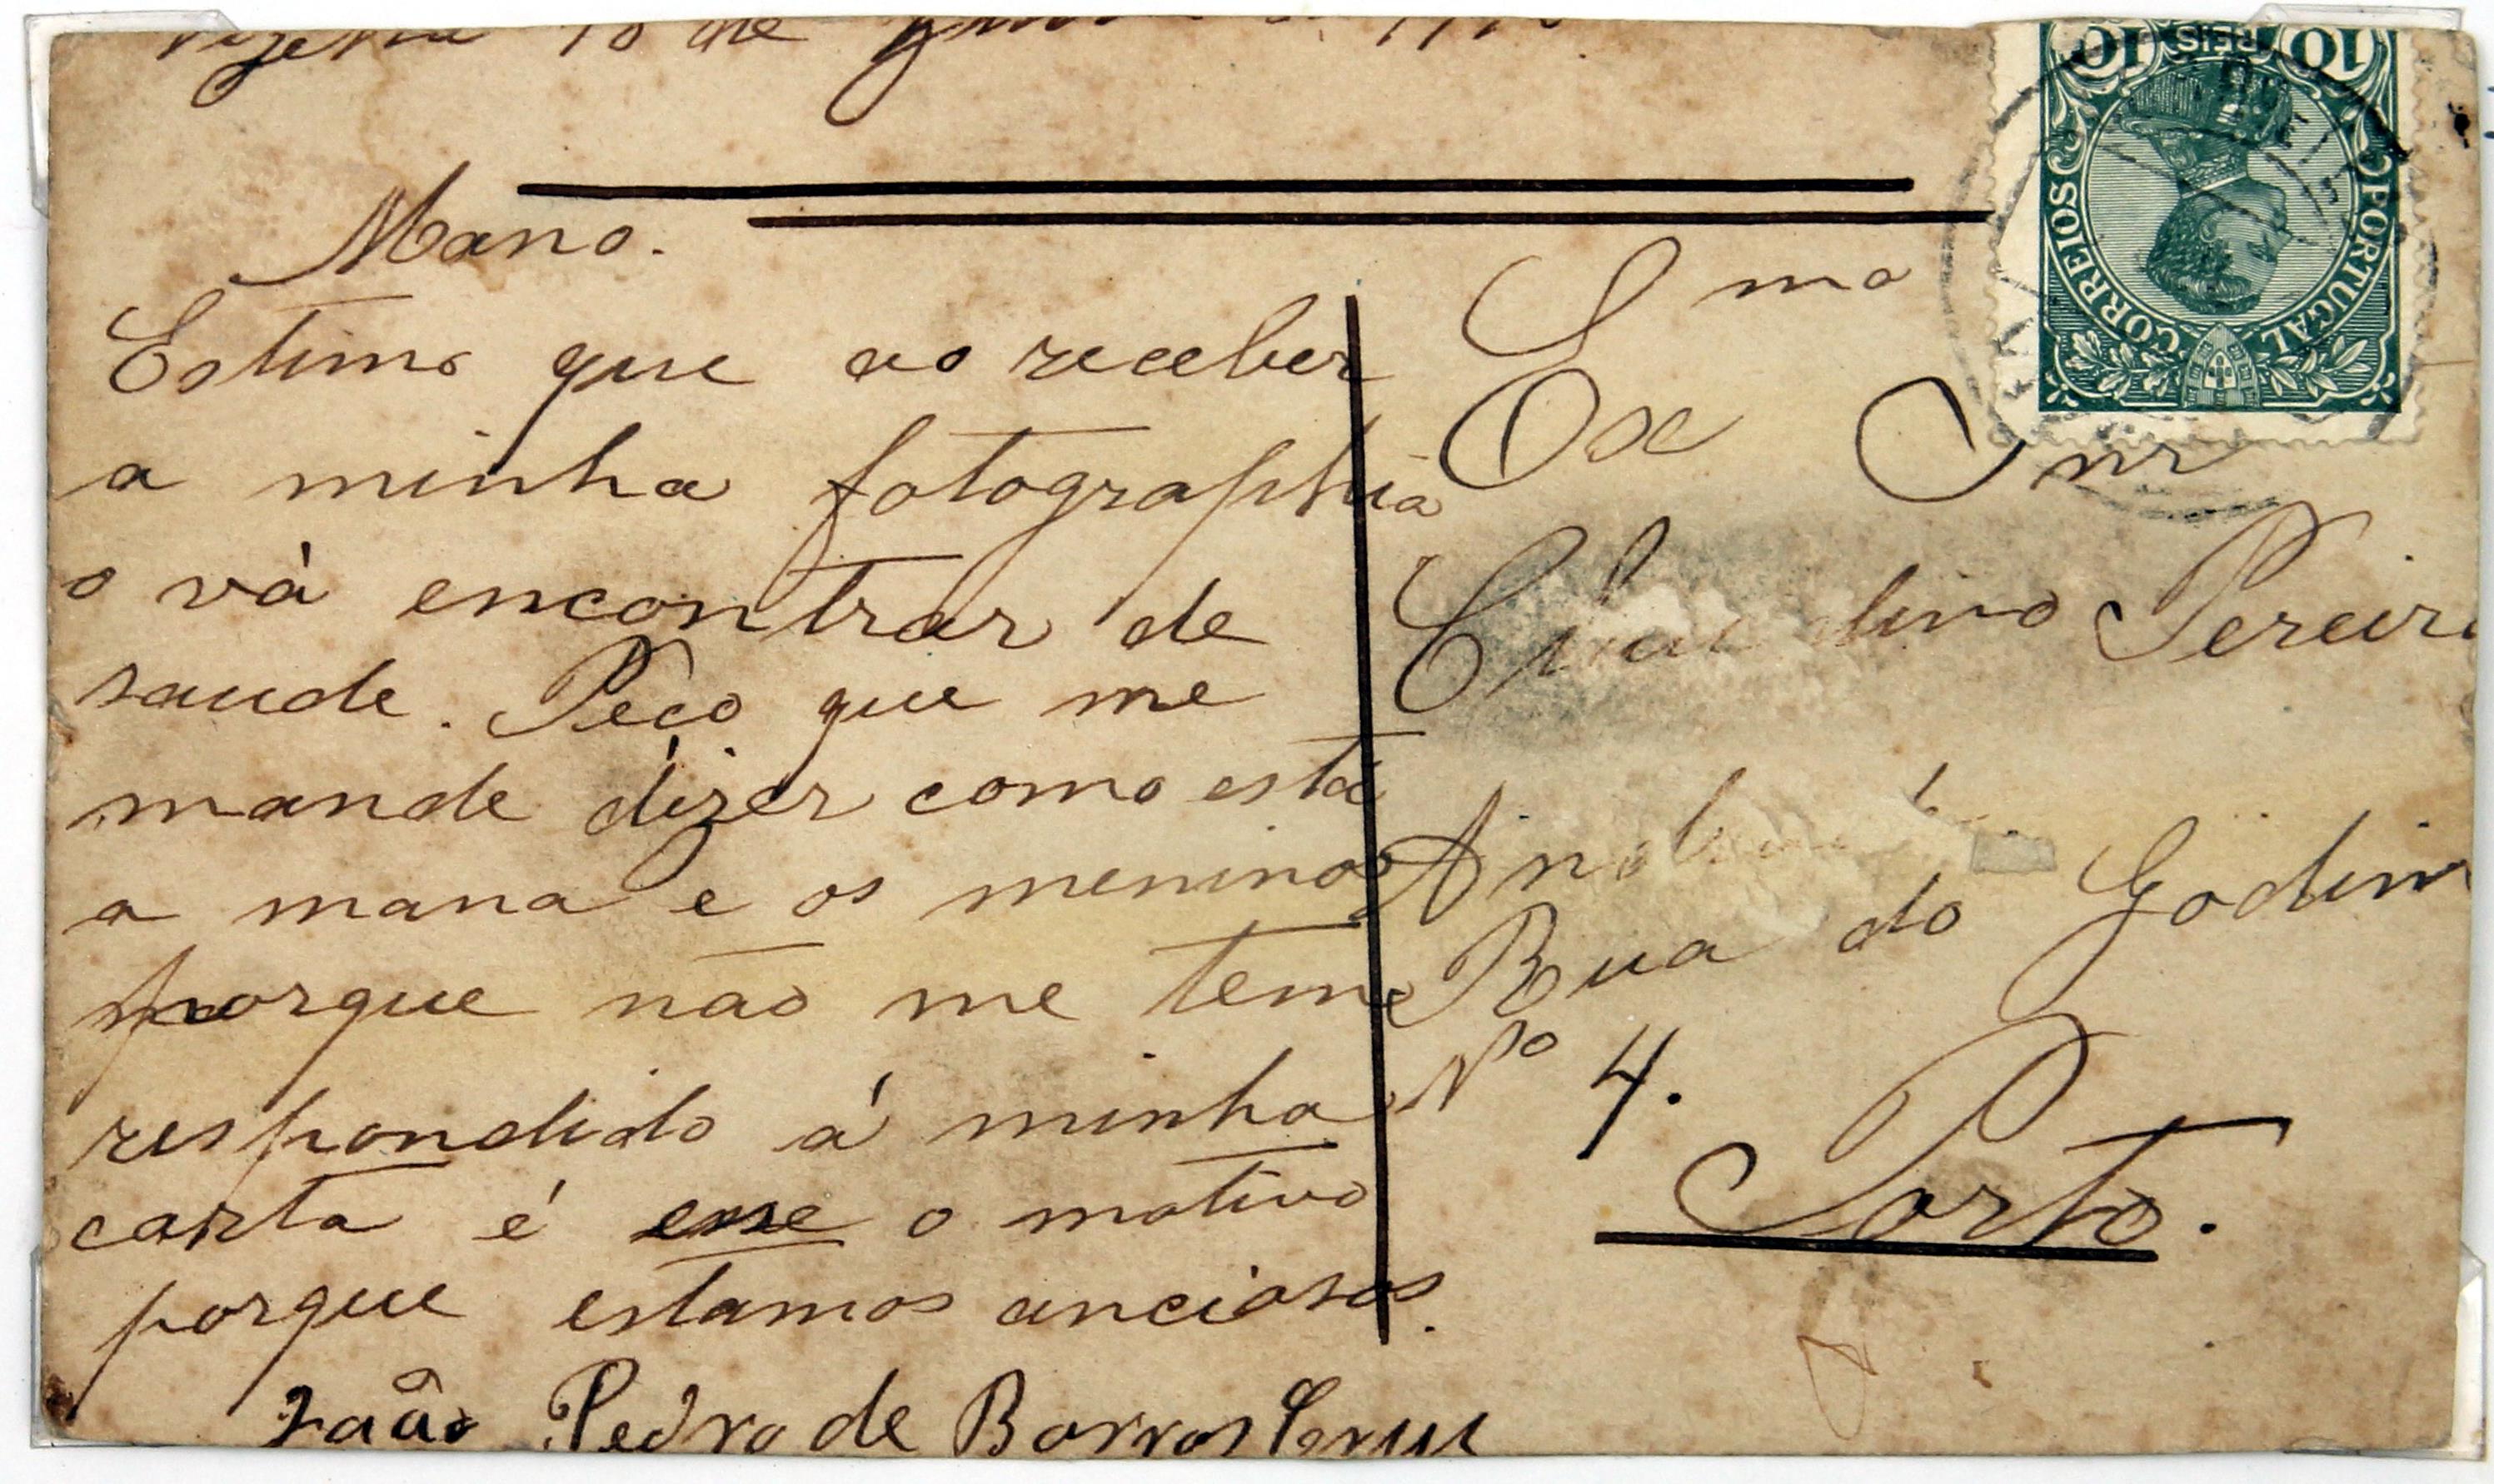 18 de
Mano.
Estimo que ao receber
a minha fotographia
o vá encontrar de
saude. Peço que me
mande dizer como está
a mana e os meninos
porque não me teme
respondido á minha
carta é esse o motivo
porque estamos anciosos.
João Pedro de Barros
mo
Ex Snr
Pereira
Rua do Godim
Nº 4.
Porto.
10 REIS 10
CORREIOS PORTUGAL